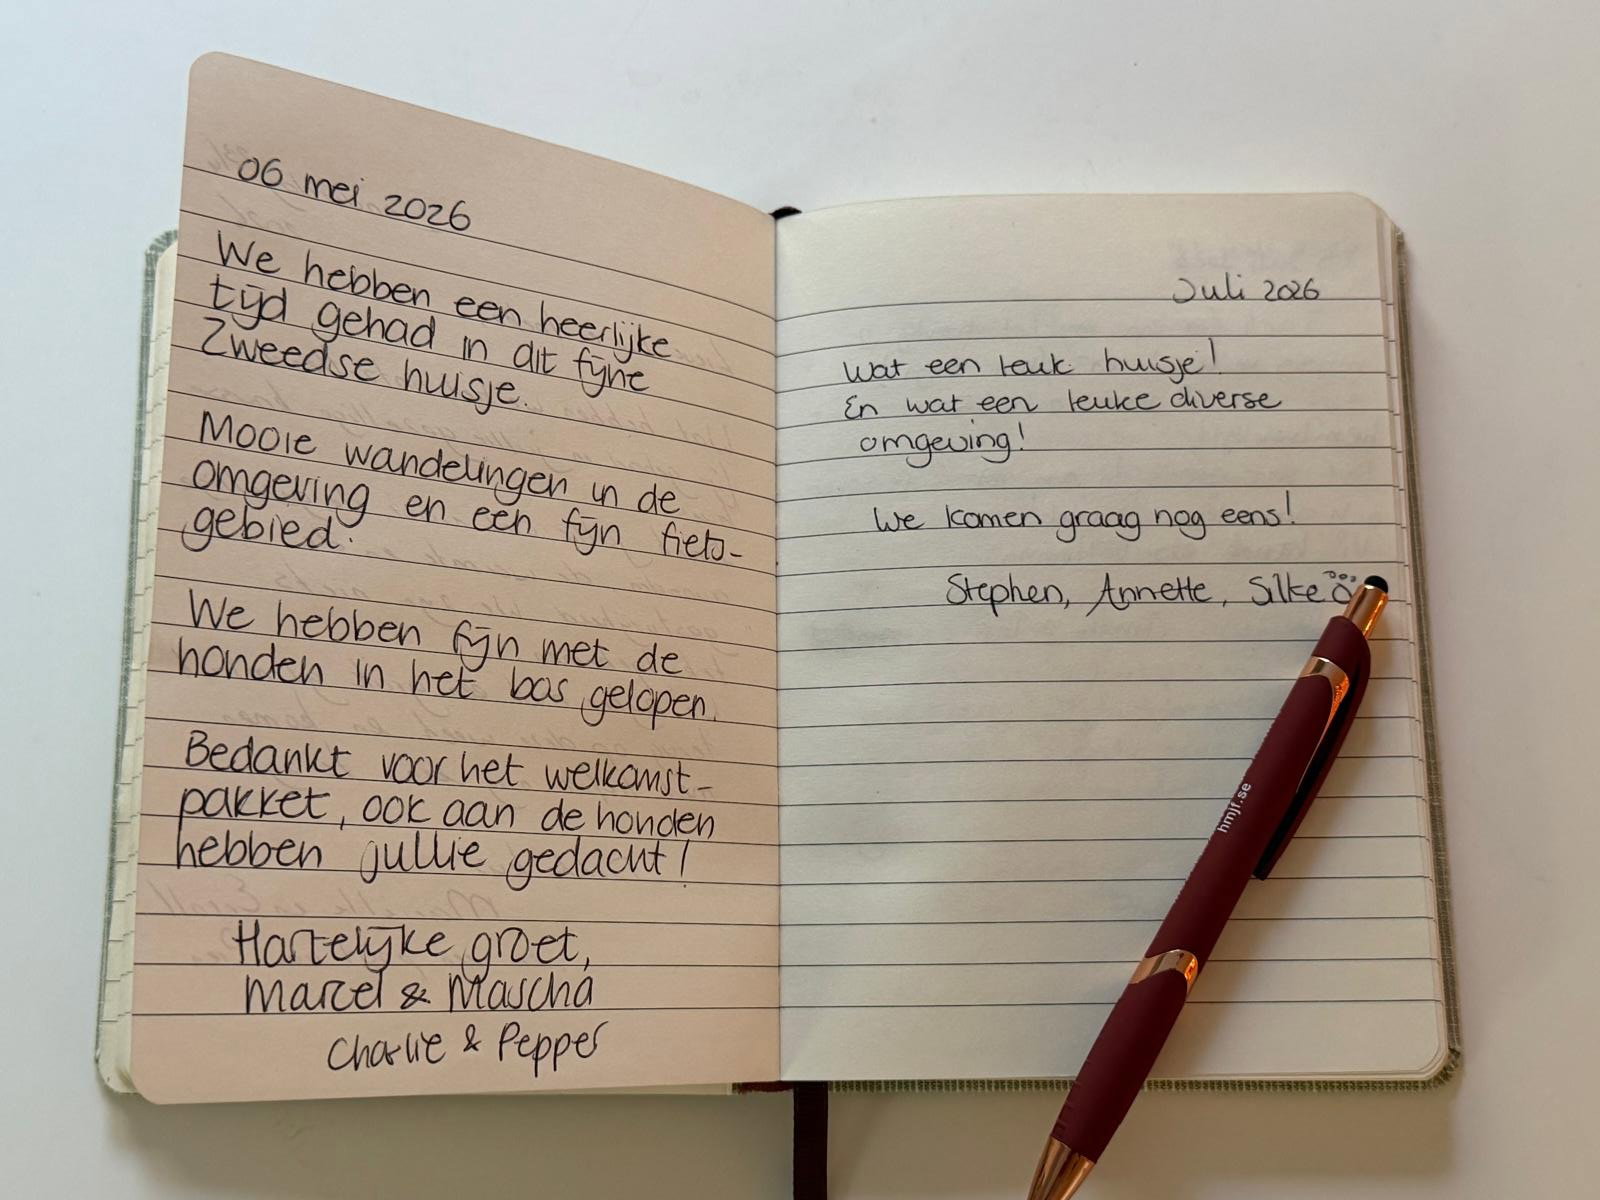 06 mei 2026
We hebben een heerlijke
tijd gehad in dit fijne
Zweedse huisje.
Mooie wandelingen in de
omgeving en een fijn fiets-
gebied.
We hebben fijn met de
honden in het bos gelopen.
Bedankt voor het welkomst-
pakket, ook aan de honden
hebben jullie gedacht!
Hartelijke groet,
Marcel & Mascha
Charlie & Pepper
Juli 2026
Wat een leuk huisje!
En wat een leuke diverse
omgeving!
We komen graag nog eens!
Stephen, Annette, Silke
hmjf.se